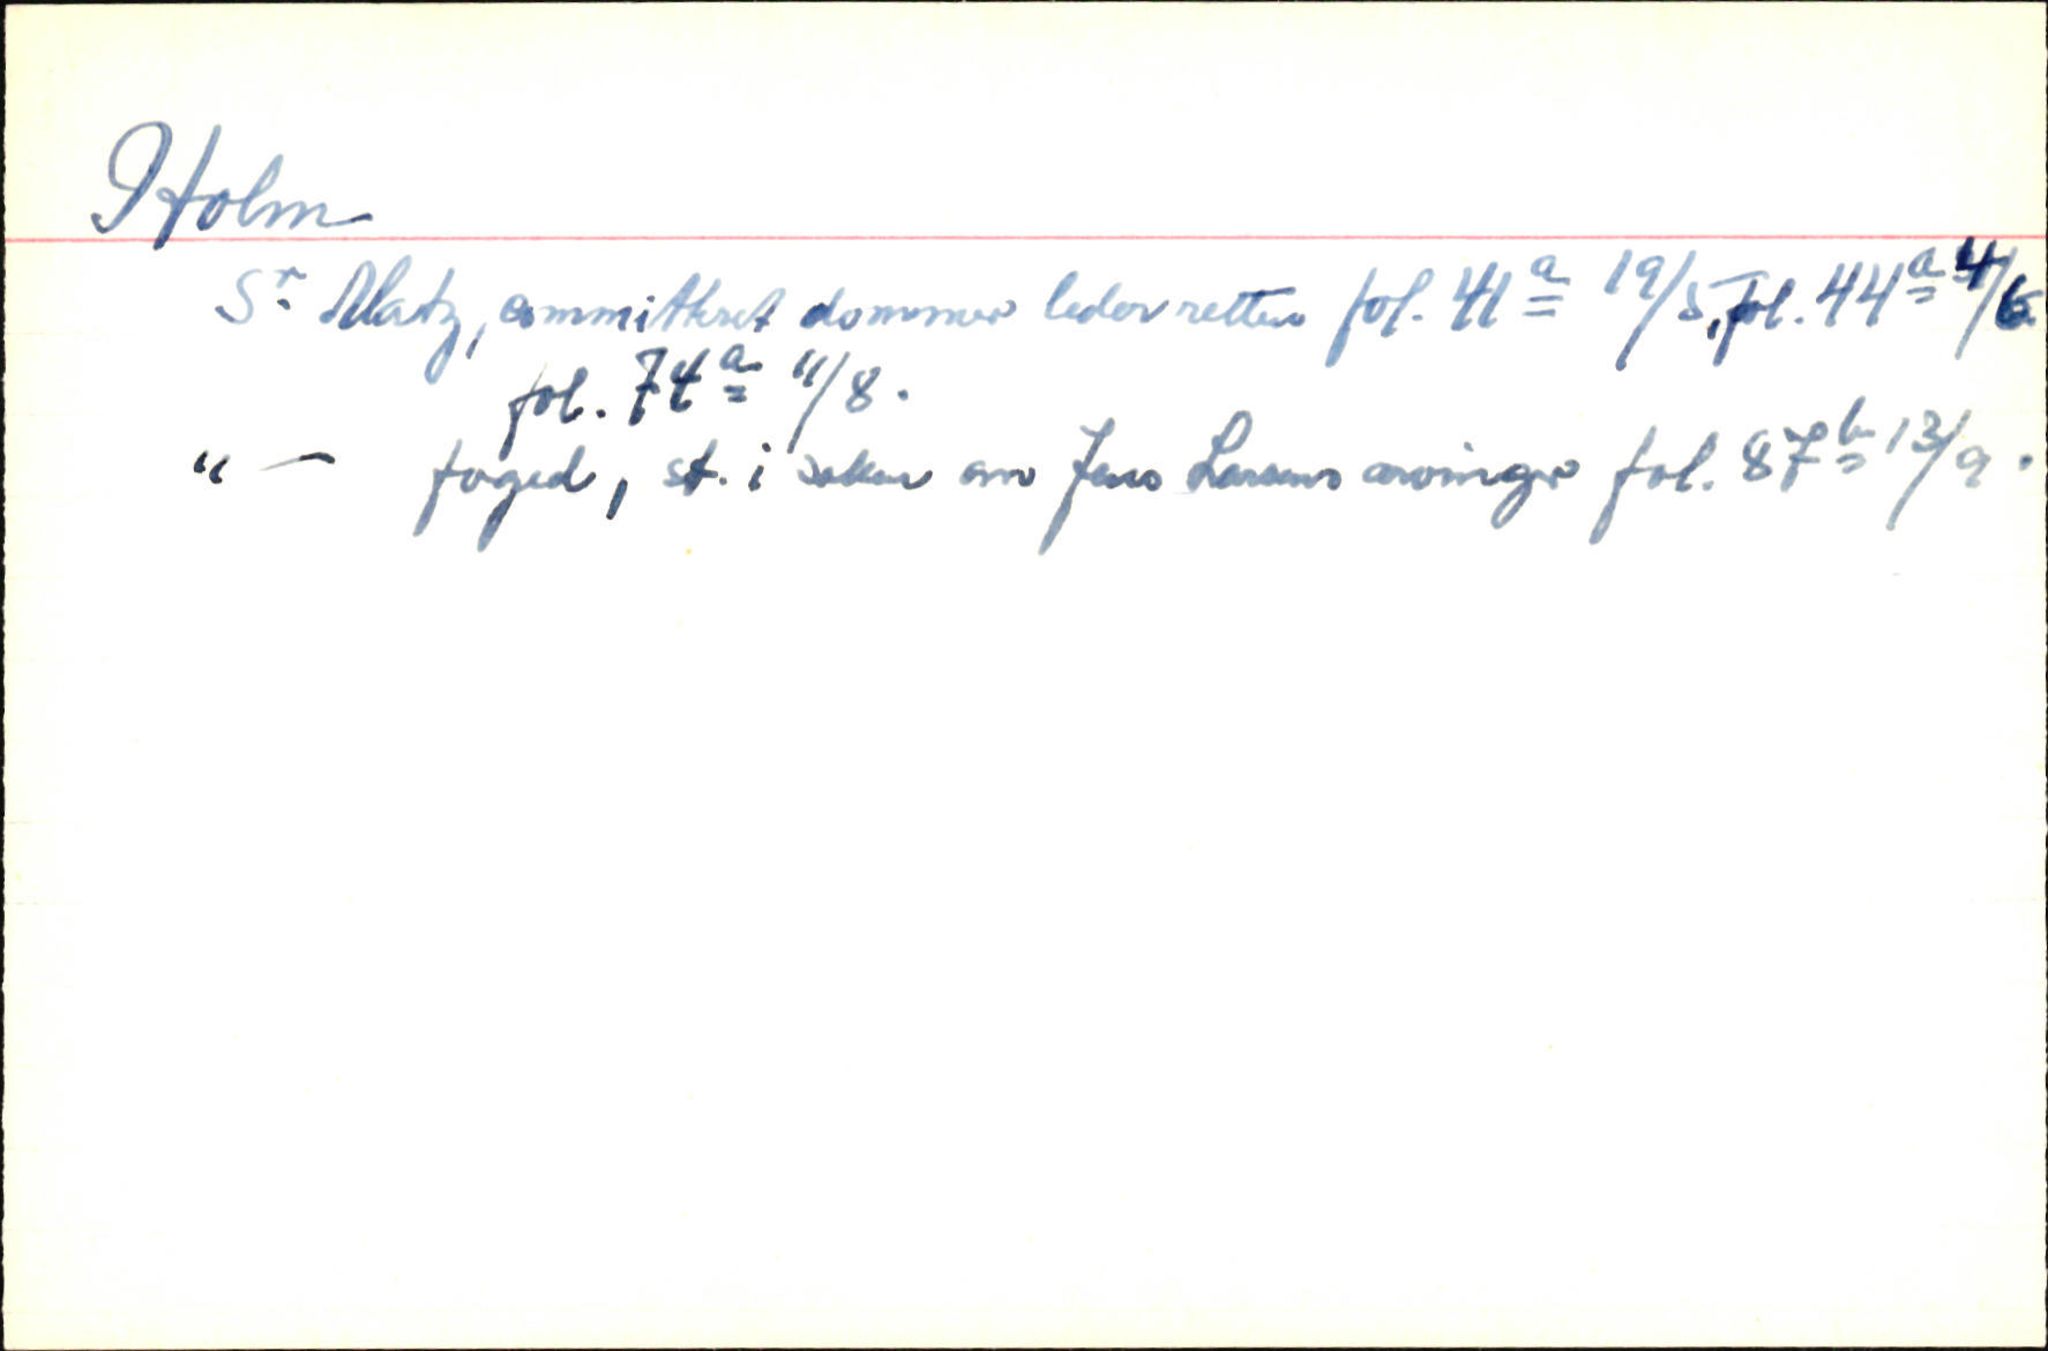 Holm
Sr. Matz, committeret dommer leder retten fol. 41a 19/5, fol. 44a 4/6
fol. 74a 11/8.
" — foged, st. i saken om Jens Larsens arvinger fol. 87b 13/9.